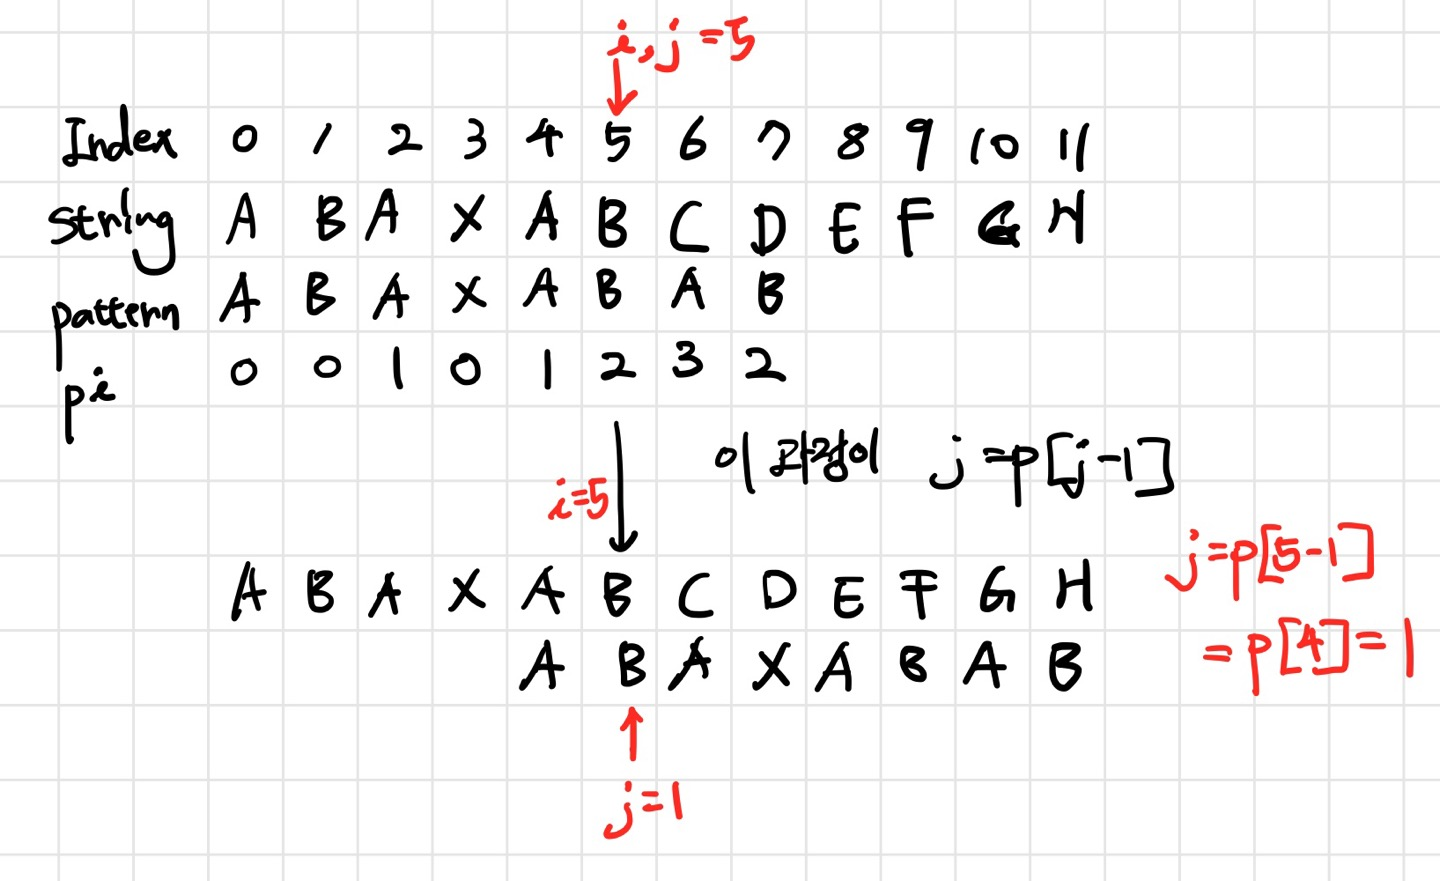 i, j = 5
Index 0 1 2 3 4 5 6 7 8 9 10 11
String A B A X A B C D E F G H
pattern A B A X A B A B
pi 0 0 1 0 1 2 3 2
이 과정이 j = p[j-1]
i=5
j=p[5-1]
A B A X A B C D E F G H
= p[4] = 1
A B A X A B A B
j=1